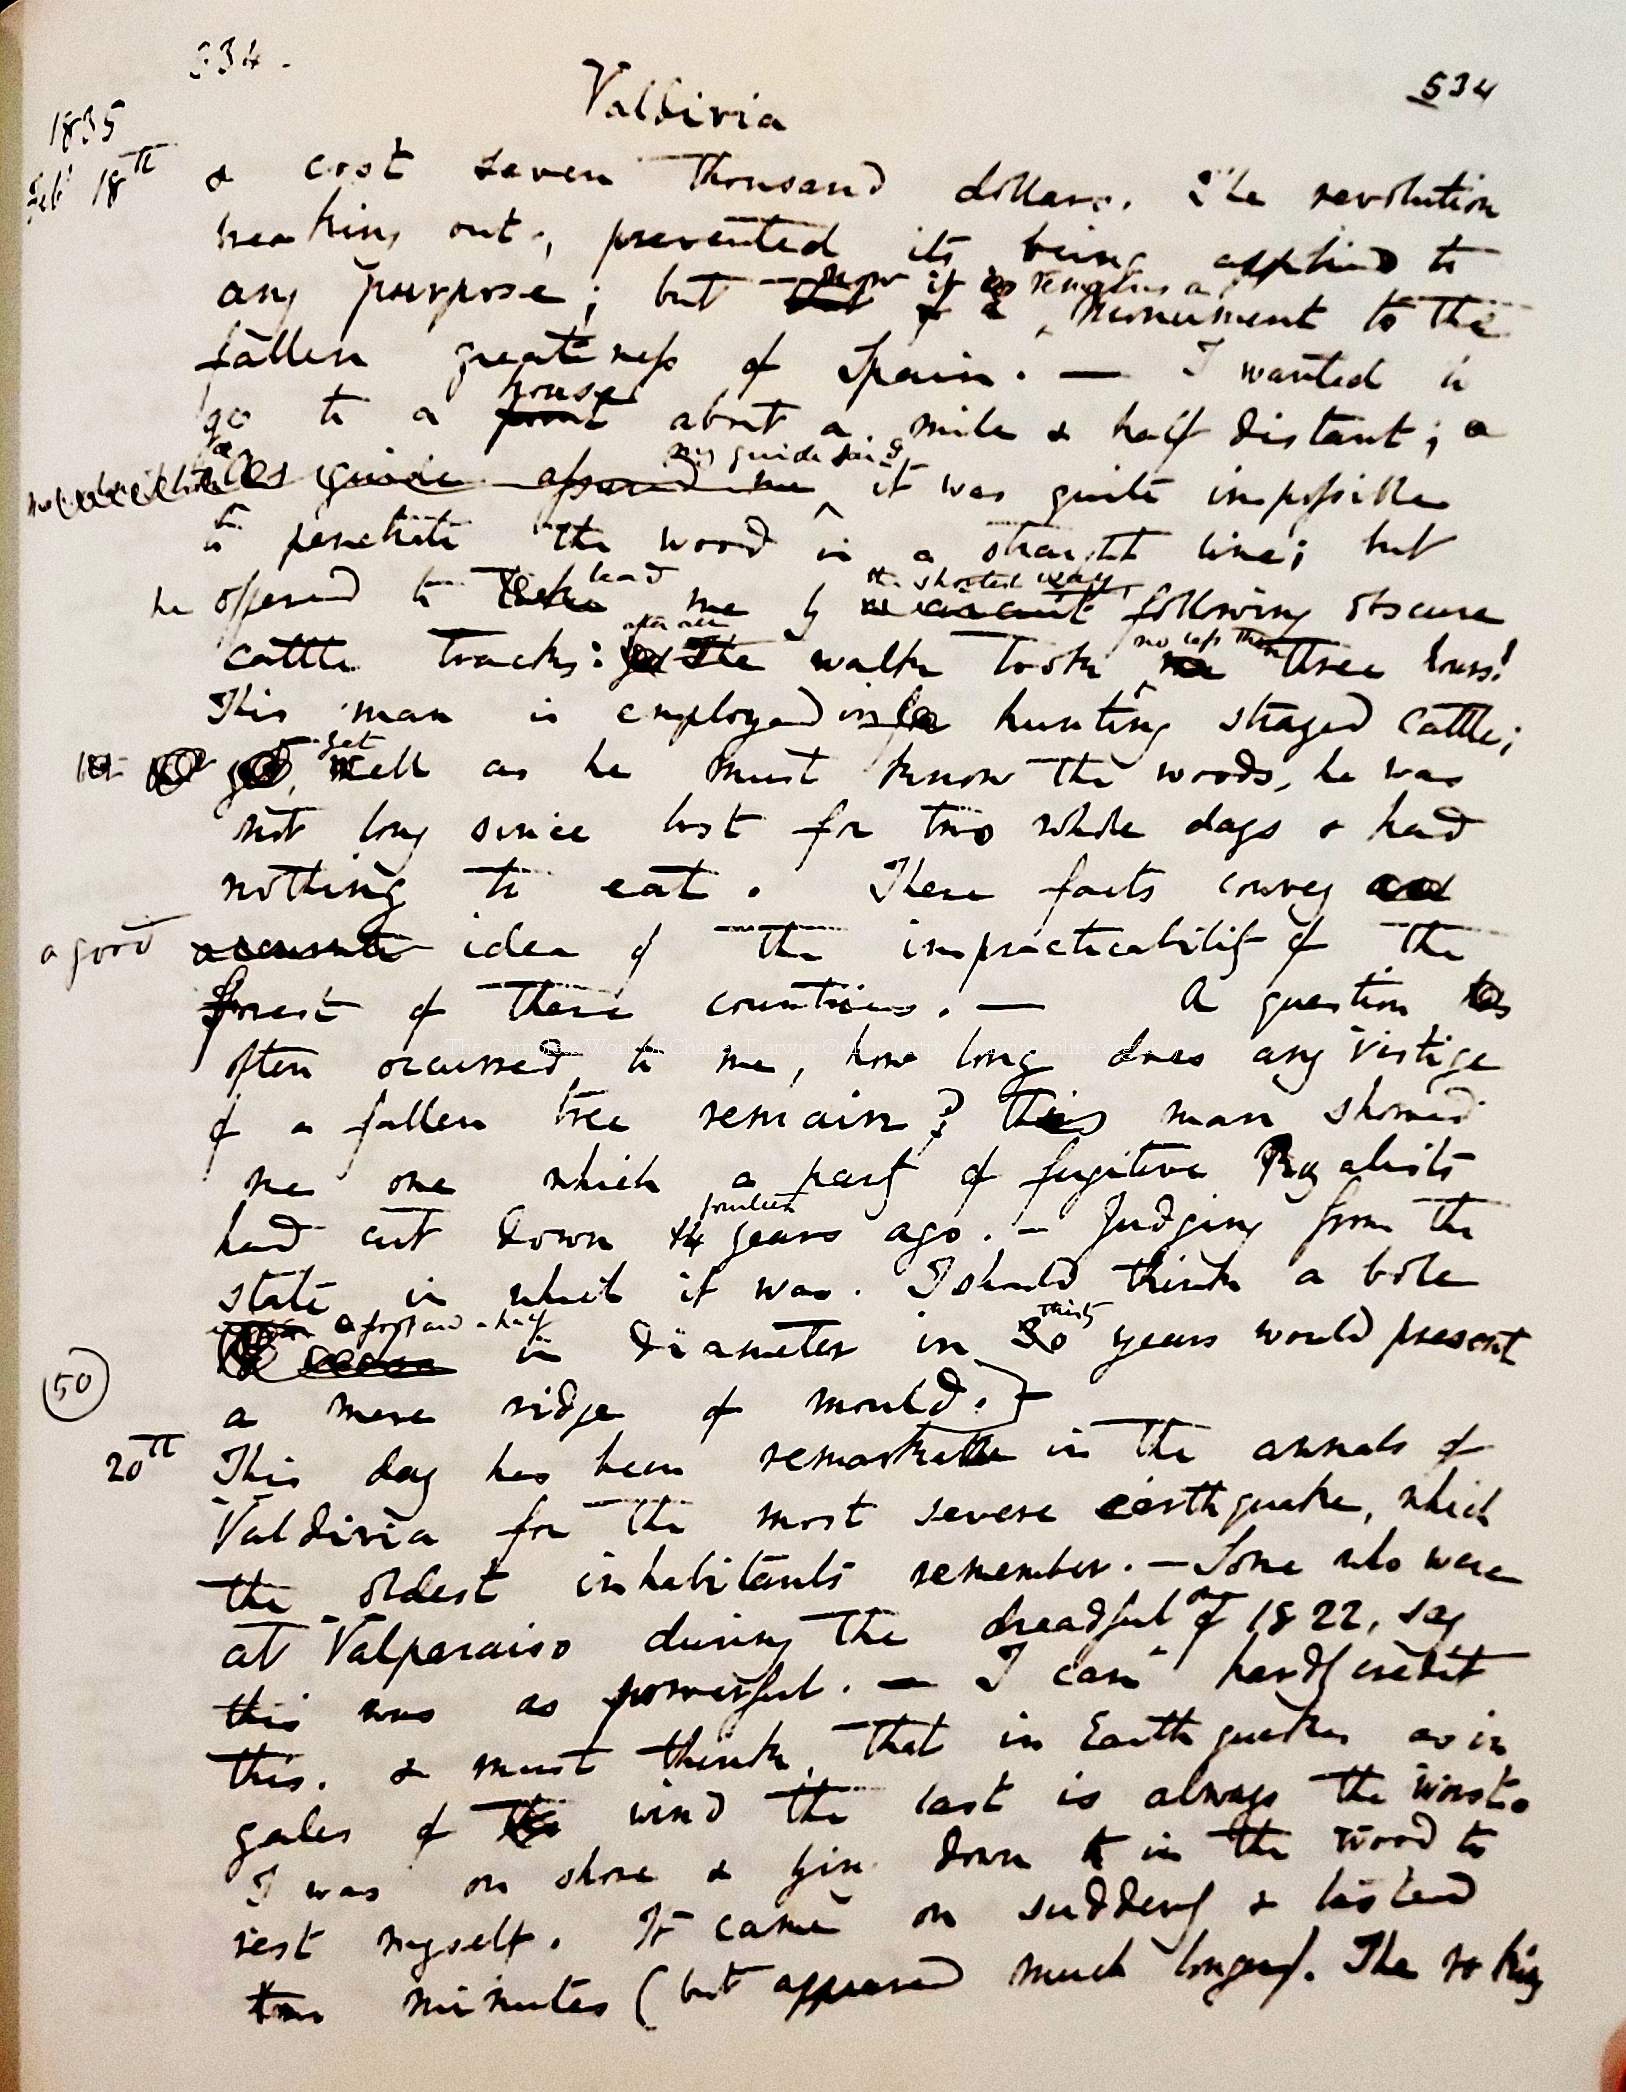 334.
Valdivia
534
1835
Feb 18th
& cost seven thousand dollars. The revolution
breaking out, prevented its being applied to
any purpose; but now it is remains a monument to the
fallen greatness of Spain. — I wanted to
house
go to a point about a mile & half distant; a
my guide said
guide assured me it was quite impossible
to penetrate the wood in a straight line; but
lead the shortest way,
he offered to take me by following obscure
after all no less than
cattle tracks: The walk took three hours!
This man is employed in hunting strayed cattle;
yet
well as he must know the woods, he was
not long since lost for two whole days & had
nothing to eat. These facts convey an
a good accurate idea of the impracticability of the
forest of these countries. — A question
often occurred to me, how long does any vestige
of a fallen tree remain? This man showed
me one which a party of fugitive Royalists
fourteen
had cut down 14 years ago. — Judging from the
state in which it was. I should think a bole
a foot and a half thirty
in diameter in 30 years would present
(50)
a mere ridge of mould.
20th This day has been remarkable in the annals of
Valdivia for the most severe earthquake, which
the oldest inhabitants remember. — Some who were
one
at Valparaiso during the dreadful of 1822, say
this was as powerful. — I can hardly credit
this. & must think, that in Earthquakes as in
gales of wind the last is always the worst.
I was on shore & lying down in the wood to
rest myself. It came on suddenly & lasted
two minutes (but appeared much longer). The rocking